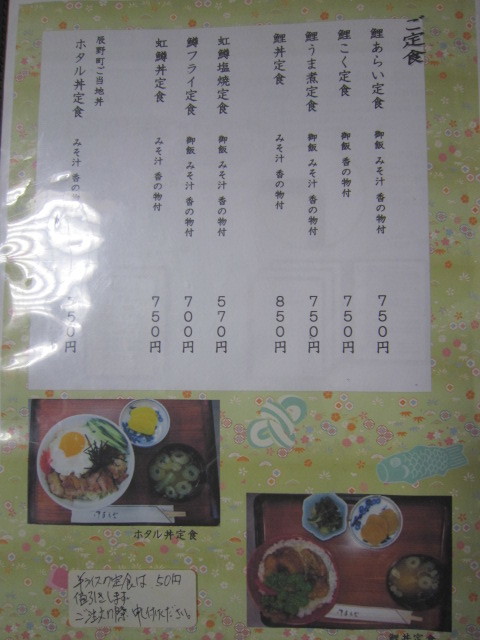 ご定食
鯉あらい定食 御飯 みそ汁 香の物付 750円
鯉こく定食 御飯 香の物付 750円
鯉うま煮定食 御飯 みそ汁 香の物付 750円
鯉丼定食 みそ汁 香の物付 850円
虹鱒塩焼定食 御飯 みそ汁 香の物付 570円
鱒フライ定食 御飯 みそ汁 香の物付 700円
虹鱒丼定食 みそ汁 香の物付 750円
辰野町ご当地丼
ホタル丼定食 みそ汁 香の物 50円
ホタル丼定食
半ライスの定食は 50円
値引きします。
ご注文の際 申し付け下さい。
丼定食